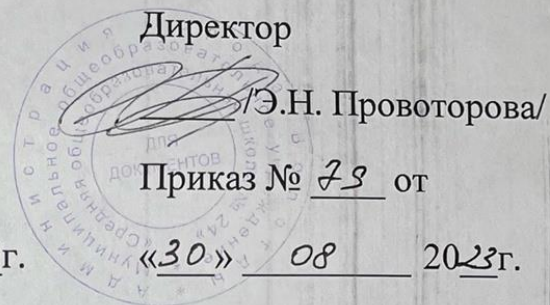 Директор
/Э.Н. Провоторова/
Приказ № 79 от
г. «30» 08 2023г.
ДЛЯ
ДОКУМЕНТОВ